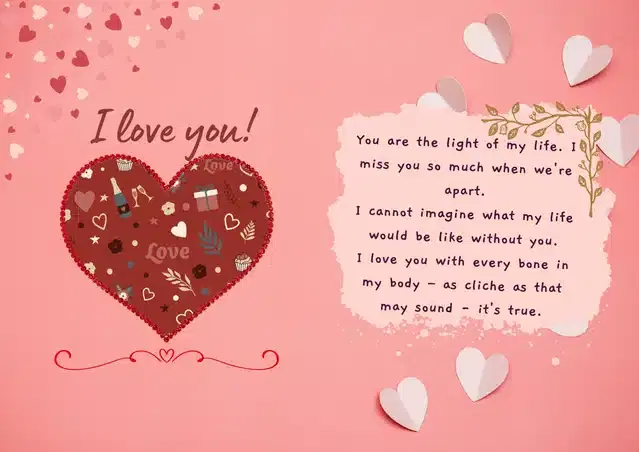 I love you!
Love
Love
You are the light of my life. I
miss you so much when we're
apart.
I cannot imagine what my life
would be like without you.
I love you with every bone in
my body – as cliche as that
may sound – it's true.